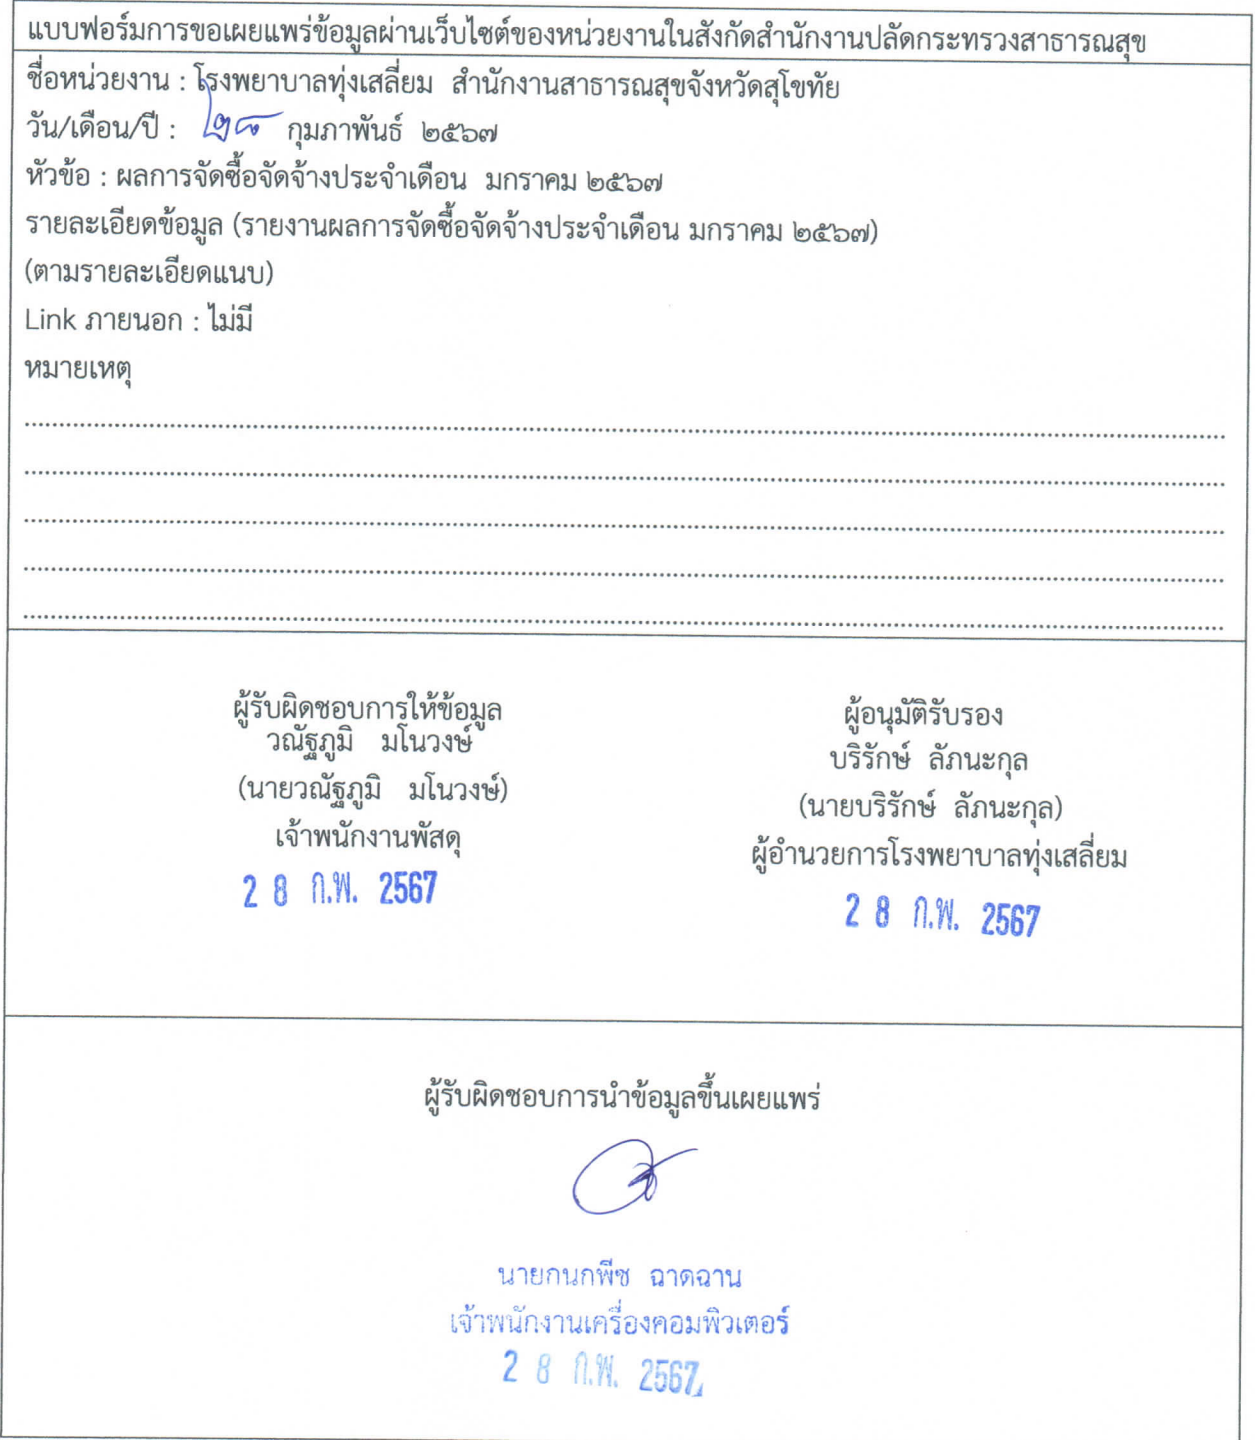 แบบฟอร์มการขอเผยแพร่ข้อมูลผ่านเว็บไซต์ของหน่วยงานในสังกัดสำนักงานปลัดกระทรวงสาธารณสุข
ชื่อหน่วยงาน : โรงพยาบาลทุ่งเสลี่ยม สำนักงานสาธารณสุขจังหวัดสุโขทัย
วัน/เดือน/ปี : ๒๘ กุมภาพันธ์ ๒๕๖๗
หัวข้อ : ผลการจัดซื้อจัดจ้างประจำเดือน มกราคม ๒๕๖๗
รายละเอียดข้อมูล (รายงานผลการจัดซื้อจัดจ้างประจำเดือน มกราคม ๒๕๖๗)
(ตามรายละเอียดแนบ)
Link ภายนอก : ไม่มี
หมายเหตุ
ผู้รับผิดชอบการให้ข้อมูล
วณัฐภูมิ มโนวงษ์
(นายวณัฐภูมิ มโนวงษ์)
เจ้าพนักงานพัสดุ
2 8 ก.พ. 2567
ผู้อนุมัติรับรอง
บริรักษ์ ลัภนะกุล
(นายบริรักษ์ ลัภนะกุล)
ผู้อำนวยการโรงพยาบาลทุ่งเสลี่ยม
2 8 ก.พ. 2567
ผู้รับผิดชอบการนำข้อมูลขึ้นเผยแพร่
นายกนกพีช ฉาดฉาน
เจ้าพนักงานเครื่องคอมพิวเตอร์
2 8 ก.พ. 2567